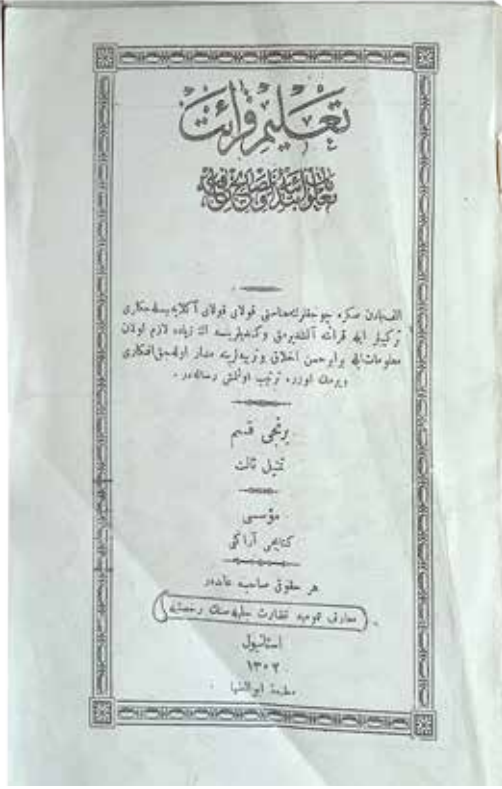 تعليم قرائت
الفبادن صكره چوجقلرك معناسنى قولاى قولاى آكلايه‌بيله‌جكلرى
تركيبلر ايله قرائته آلشديرمق وكنديلرينه اك زياده لازم اولان
معلومات ايله برابر حسن اخلاق و تربيه‌لرينه مدار اوله‌جق افكارى
ويرمك اوزره ترتيب اولنمش رساله‌در .
برنجى قسم
تمثيل ثالث
مؤسسى
كتابجى آراكل
هر حقوقى صاحبنه عائددر
معارف عموميه نظارت جليله‌سنك رخصتيله
استانبول
١٣٠٢
مطبعهٔ ابوالضيا